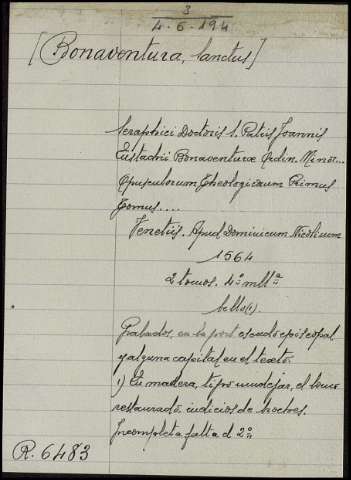 3
4-6-194
[Bonaventura, Sanctus]
Seraphici Doctoris S. Patris Joannis
Eustachii Bonaventurae Ordin. Minor...
Opusculorum Theologicorum Primus
Tomus....
Venetiis. Apud Dominicum Nicolinum
1564
2 tomos. 4º mllª
bello(1).
Grabados, en la port escudo episcopal
y alguna capital en el texto.
1) En madera, tipo mudejar, el lomo
restaurado, indicios de broches.
Incompleta falta el 2º
R. 6483